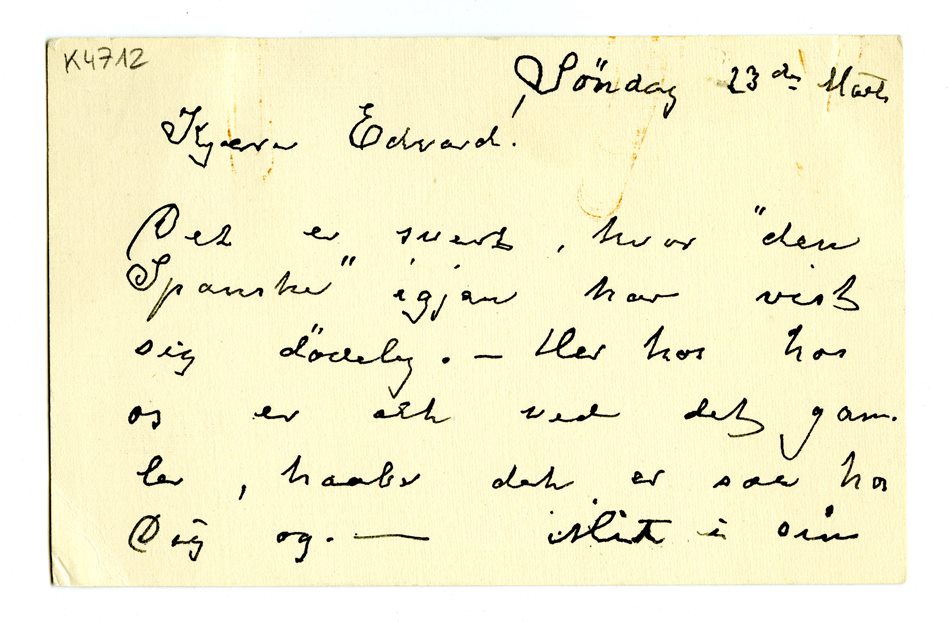 K4712
Söndag 23de Marts
Kjære Edvard.
Det er svert, hvor "den
Spanske" igjen har vist
sig dödelig. — Her hos hos
os er alt ved det gam-
le, haaber det er saa hos
Dig og. — Mit i